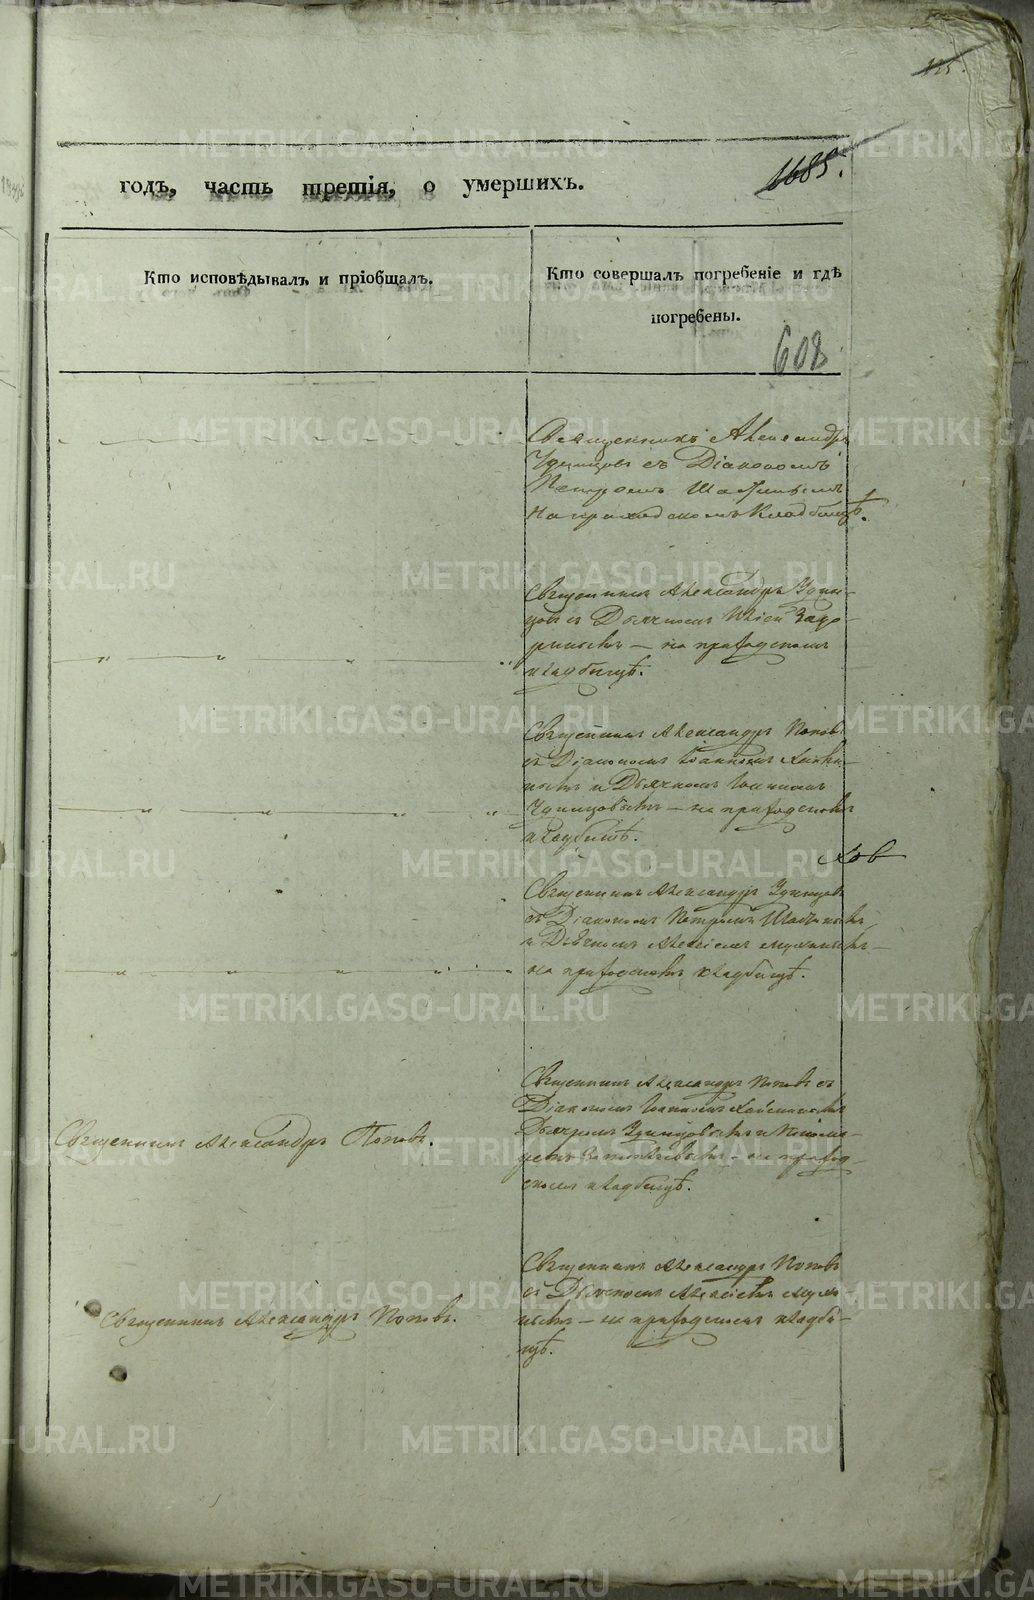 125.
1685.
годъ, часть третія, о умершихъ.
Кто исповѣдывалъ и пріобщалъ.
Кто совершалъ погребеніе и гдѣ
погребены.
608
Священникъ Александръ
Удинцовъ съ Діакономъ
Петромъ
на приходскомъ Кладбищѣ.
Священникъ Александръ Удин-
цовъ съ Дьячкомъ
на приходскомъ
кладбищѣ.
Священникъ Александръ Поповъ
съ Діакономъ Іоанномъ
и Дьячкомъ Іоанномъ
Удинцовымъ – на приходскомъ
кладбищѣ.
Священникъ Александръ Удинцовъ
съ Діакономъ Петромъ
и Дьячкомъ Алексіемъ
на приходскомъ кладбищѣ.
Священникъ Александръ Поповъ съ
Діакономъ Іоанномъ
Священникъ Александръ Поповъ.
Дьячкомъ Удинцовымъ и
на приход-
скомъ кладбищѣ.
Священникъ Александръ Поповъ
съ Дьячкомъ Алексіемъ
Священникъ Александръ Поповъ.
– на приходскомъ кладби-
щѣ.
METRIKI.GASO-URAL.RU